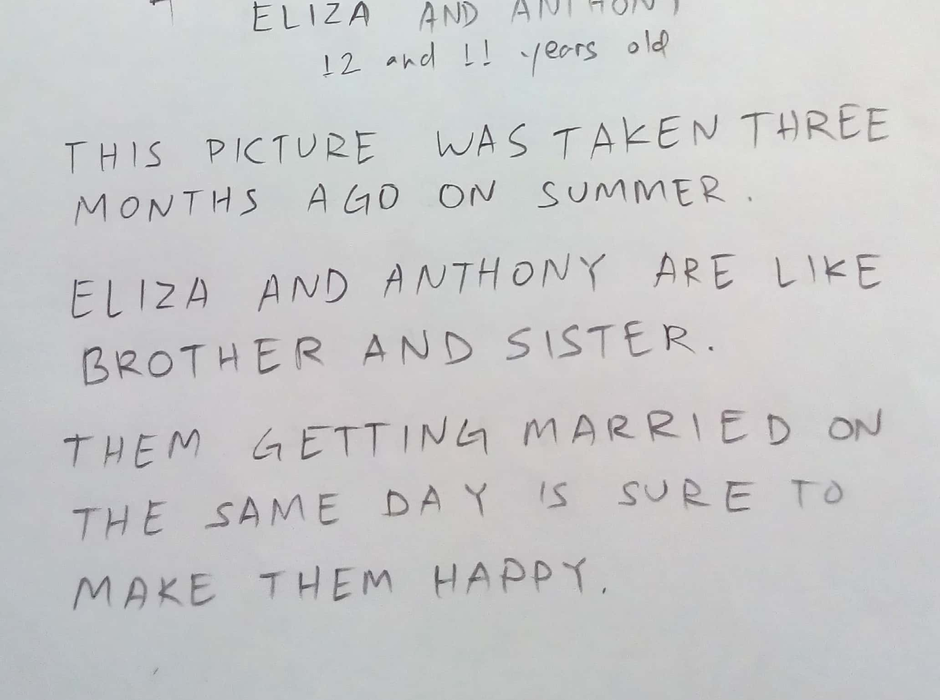 ELIZA AND ANTHONY
12 and 11 years old
THIS PICTURE WAS TAKEN THREE
MONTHS AGO ON SUMMER.
ELIZA AND ANTHONY ARE LIKE
BROTHER AND SISTER.
THEM GETTING MARRIED ON
THE SAME DAY IS SURE TO
MAKE THEM HAPPY.